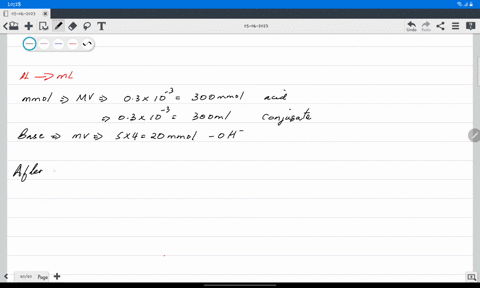 05-06-2023
05-06-2023
mmol ⇒ MV ⇒ 0.3 × 10⁻³ = 300 mmol acid
⇒ 0.3 × 10⁻³ = 300 ml conjugate
Base ⇒ mV ⇒ 5 × 4 = 20 mmol - OH⁻
After
Page